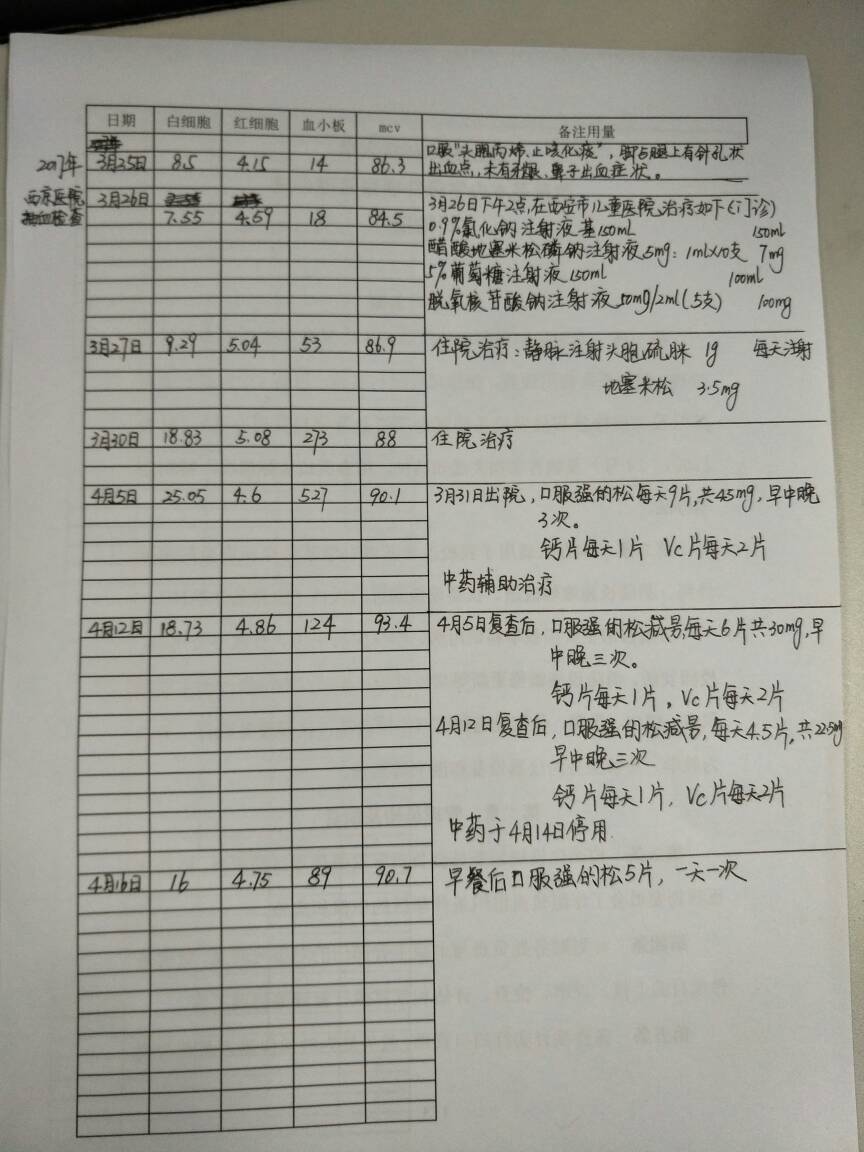 日期 白细胞 红细胞 血小板 mcv 备注用量
2017年 3月25日 8.5 4.15 14 86.3 口服"头孢丙烯、止咳化痰",脚与腿上有针孔状
出血点,未有牙龈、鼻子出血症状。
西京医院 3月26日
抽血检查 7.55 4.59 18 84.5 3月26日下午2点,在西安市儿童医院治疗如下(门诊)
0.9%氯化钠注射液基150ml 150ml
醋酸地塞米松磷钠注射液5mg:1ml×10支 7mg
5%葡萄糖注射液150ml 100ml
脱氧核苷酸钠注射液50mg/2ml(5支) 100mg
3月27日 9.29 5.04 53 86.9 住院治疗:静脉注射头孢硫脒 1g 每天注射
地塞米松 3.5mg
3月30日 18.83 5.08 273 88 住院治疗
4月5日 25.05 4.6 527 90.1 3月31日出院,口服强的松每天9片,共45mg,早中晚
3次。
钙片每天1片 Vc片每天2片
中药辅助治疗
4月12日 18.73 4.86 124 93.4 4月5日复查后,口服强的松减量,每天6片共30mg,早
中晚三次。
钙片每天1片,Vc片每天2片
4月12日复查后,口服强的松减量,每天4.5片,共22.5mg
早中晚三次
钙片每天1片,Vc片每天2片
中药于4月14日停用.
4月16日 16 4.75 89 90.7 早餐后口服强的松5片,一天一次